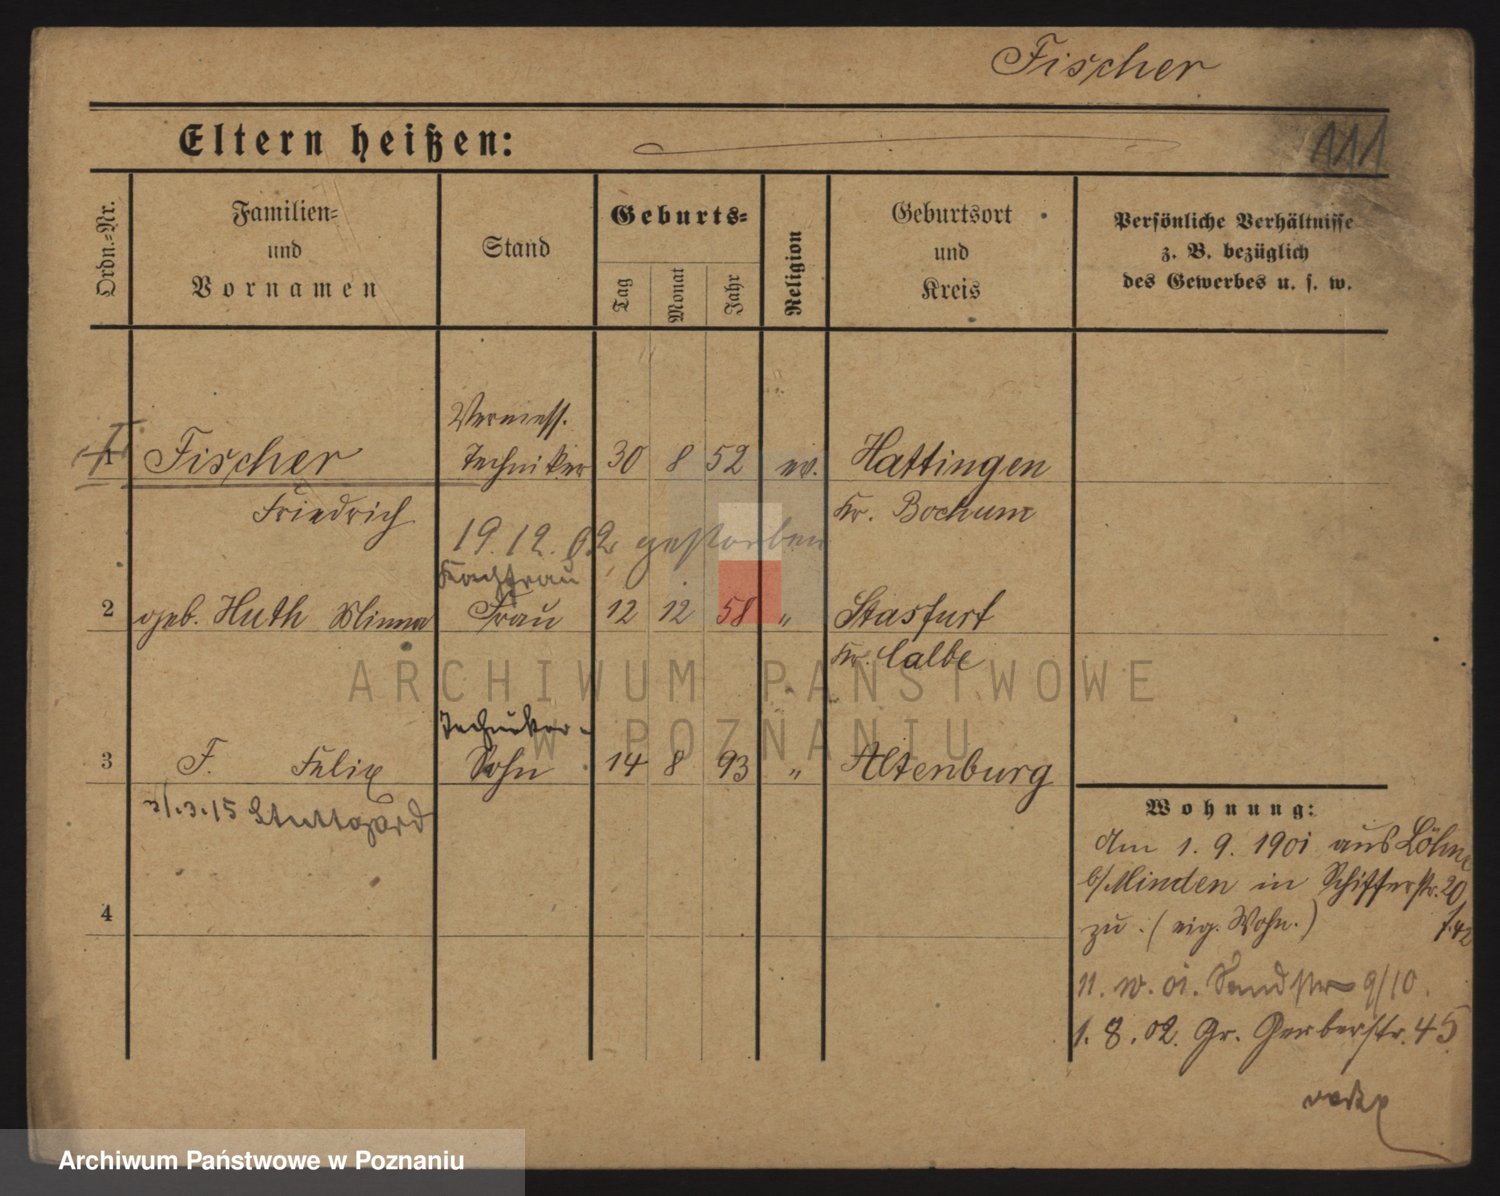 Fischer
Eltern heißen:
111
Ordn.-Nr.
Familien-
und
Vornamen
Stand
Geburts-
Tag
Monat
Jahr
Religion
Geburtsort
und
Kreis
Persönliche Verhältnisse
z. B. bezüglich
des Gewerbes u. s. w.
Vermess.
1 Fischer Techniker 30 8 52 ev. Hattingen
Friedrich Kr. Bochum
19. 12. 02 gestorben
Kochfrau
2 geb. Huth Minna Frau 12 12 58 " Stasfurt
Kr. Calbe
ARCHIWUM PAŃSTWOWE
W POZNANIU
Techniker-
3 F. Felix Sohn 14 8 93 " Altenburg
31.3.15 Stuttgard
Wohnung:
Am 1. 9. 1901 aus Löhne
b/Minden in Schifferstr. 20
zu. (eig. Wohn.)
4
Sandstr 9/10.
1. 8. 02. Gr. Gerberstr. 45
Archiwum Państwowe w Poznaniu